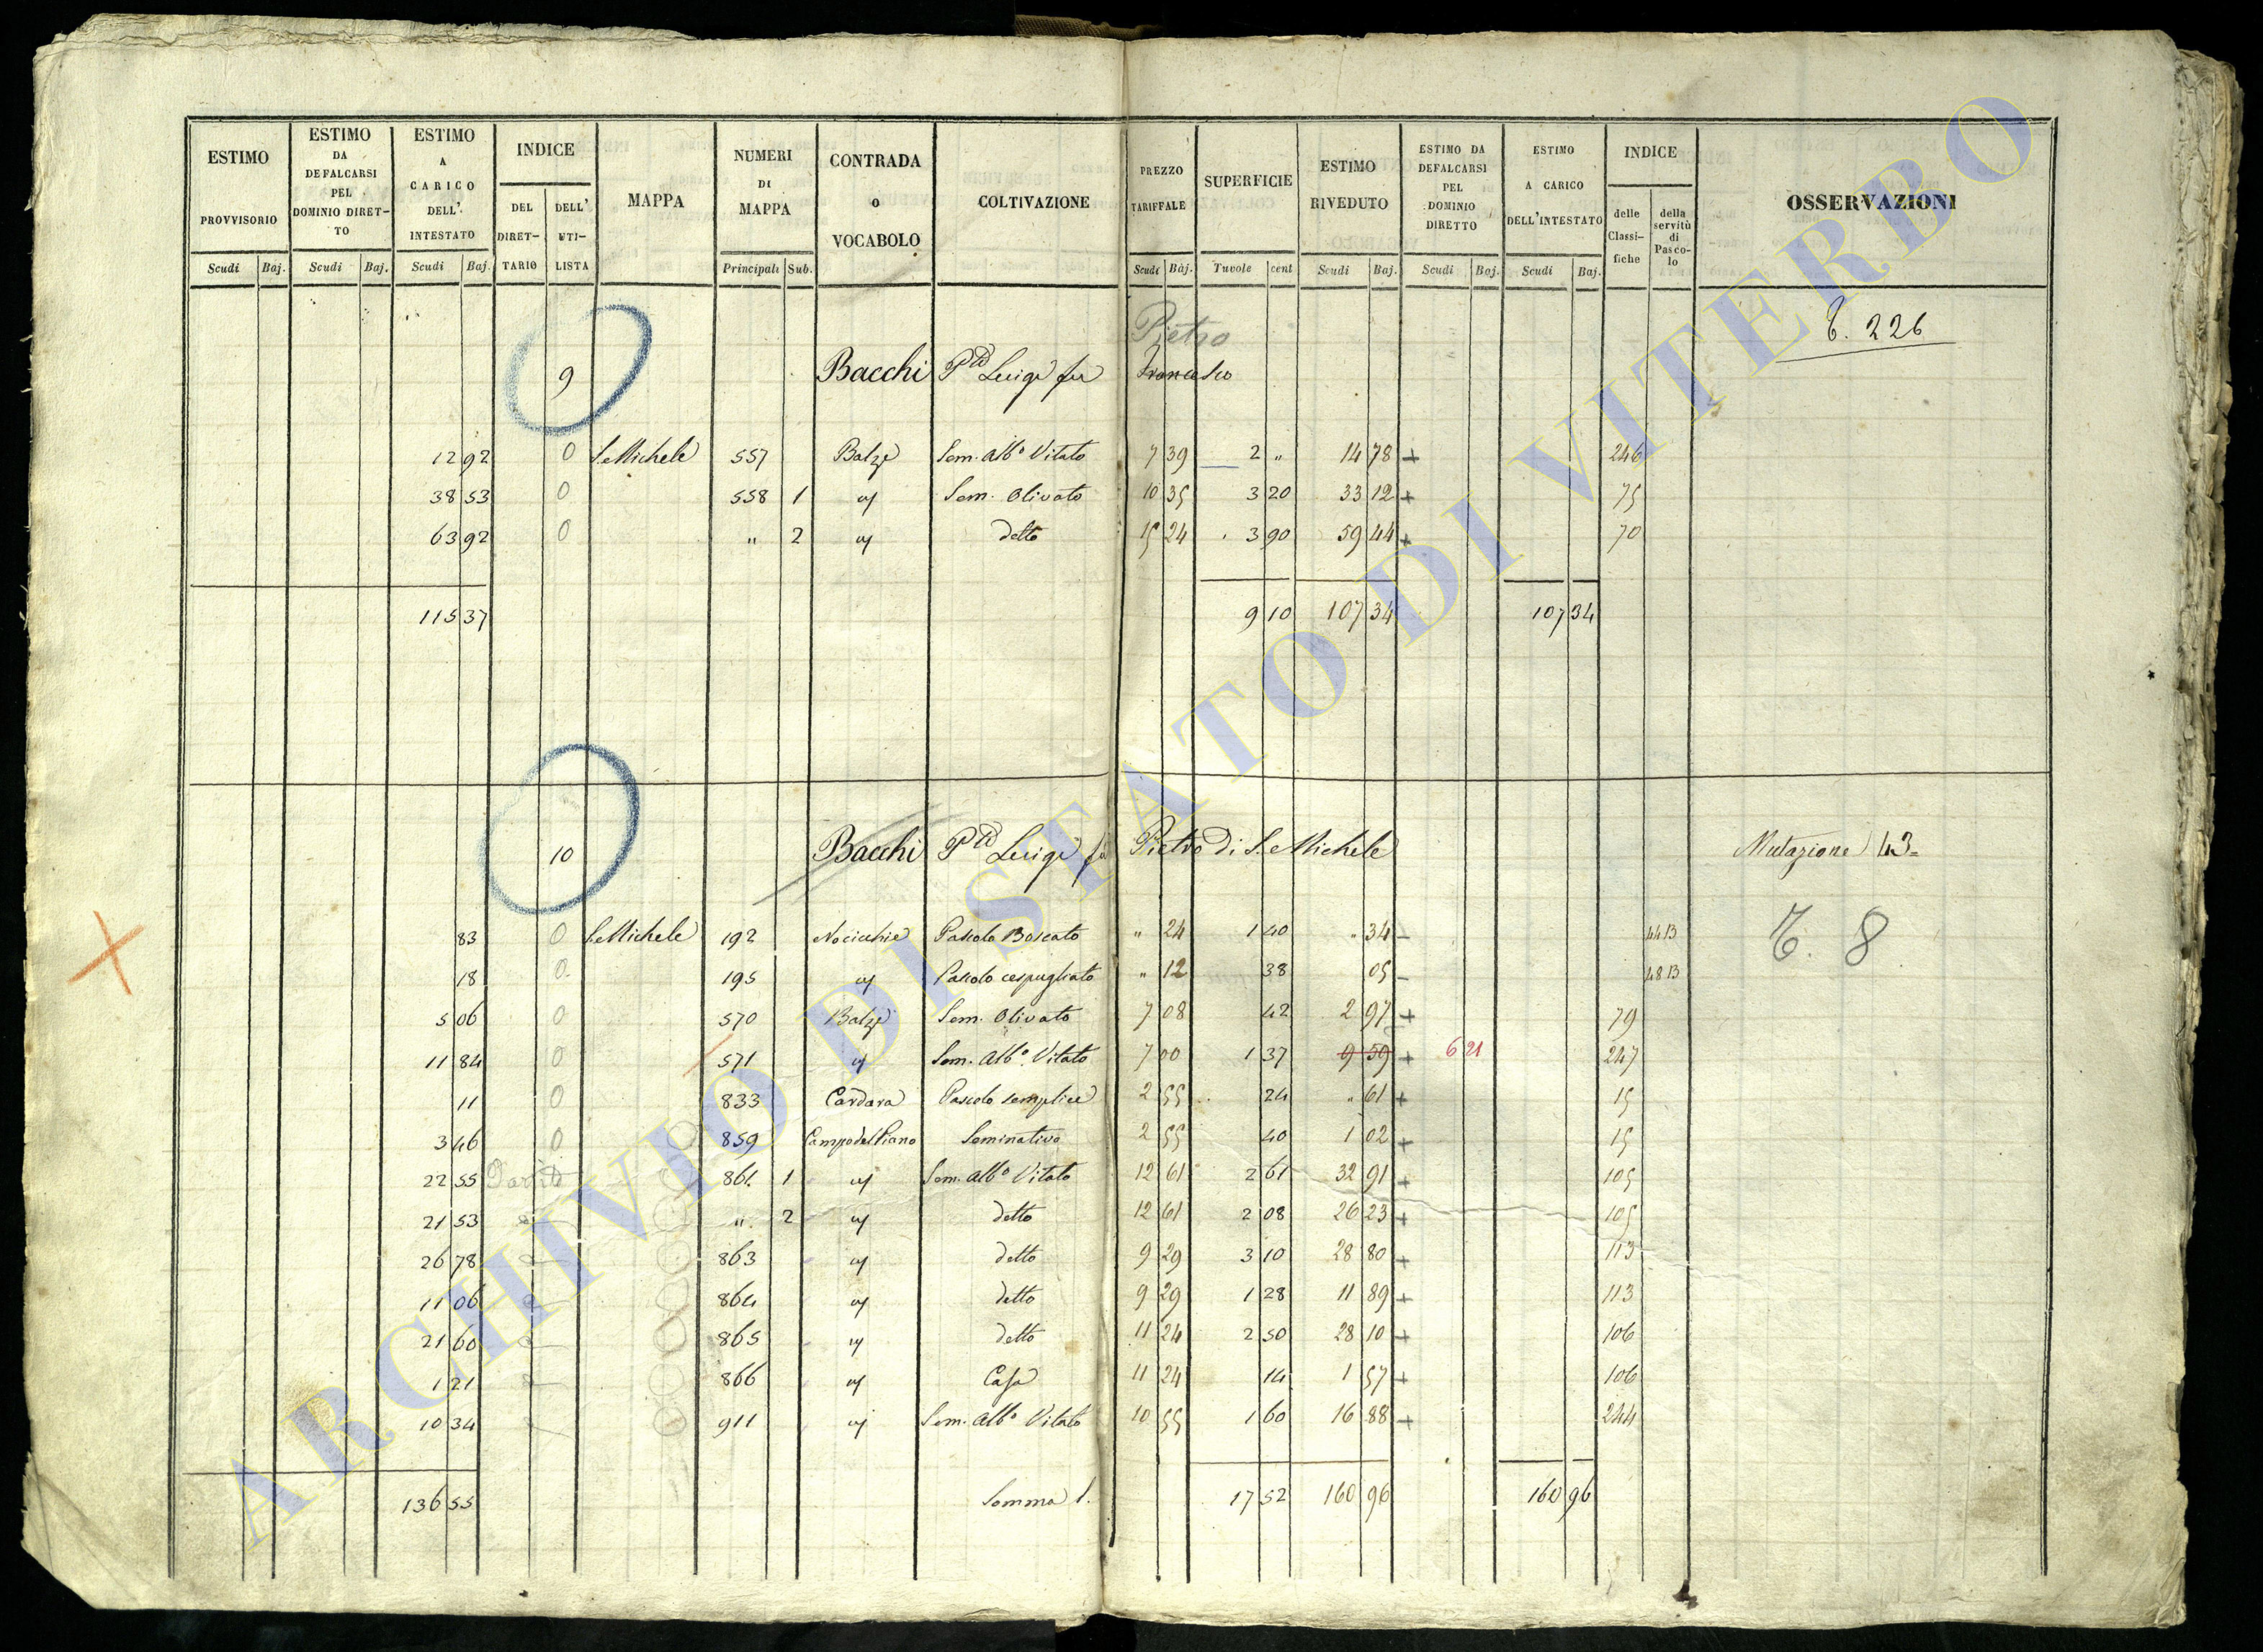 ESTIMO PROVVISORIO | ESTIMO DA DEFALCARSI PEL DOMINIO DIRET-TO | ESTIMO A CARICO DELL' INTESTATO | INDICE DEL DIRET-TARIO | DELL' UTI-LISTA | MAPPA | NUMERI DI MAPPA | CONTRADA O VOCABOLO | COLTIVAZIONE | PREZZO TARIFFALE | SUPERFICIE | ESTIMO RIVEDUTO | ESTIMO DA DEFALCARSI PEL DOMINIO DIRETTO | ESTIMO A CARICO DELL'INTESTATO | INDICE delle Classi-fiche | della servitù di Pasco-lo | OSSERVAZIONI
Scudi Baj. | Scudi Baj. | Scudi Baj. | Principali Sub. | Scudi Baj. | Tavole cent | Scudi Baj. | Scudi Baj. | Scudi Baj.
Pietro
T. 226
9 Bacchi Pto Luigi fu Francesco
12 92 0 S. Michele 557 Balze Sem. Albo Vitato 7 39 2 " 14 78 + 246
38 53 0 558 1 " Sem. Olivato 10 35 3 20 33 12 + 75
63 92 0 " 2 " detto 15 24 3 90 59 44 + 70
115 37 9 10 107 34 107 34
10 Bacchi Pto Luigi fu Pietro di S. Michele Mutazione 43=
83 0 S. Michele 192 Nocicchie Pascolo Boscato " 24 1 40 " 34 - 44 13 T. 8
18 0 195 " Pascolo cespugliato " 12 38 05 - 48 13
5 06 0 570 Balze Sem. Olivato 7 08 42 2 97 + 79
11 84 0 571 " Sem. Albo Vitato 7 00 1 37 9 59 + 6 21 247
11 0 833 Cardara Pascolo semplice 2 55 24 " 61 + 15
3 46 0 859 Campo del Piano Seminativo 2 55 40 1 02 + 15
22 55 861 1 " Sem. Albo Vitato 12 61 2 61 32 91 + 105
21 53 " 2 " detto 12 61 2 08 26 23 + 105
26 78 863 " detto 9 29 3 10 28 80 + 113
11 06 864 " detto 9 29 1 28 11 89 + 113
21 60 865 " detto 11 24 2 50 28 10 + 106
1 21 866 " Casa 11 24 14 1 57 + 106
10 34 911 " Sem. Albo Vitato 10 55 1 60 16 88 + 244
136 55 Somma S. 17 52 160 96 160 96
ARCHIVIO DI STATO DI VITERBO